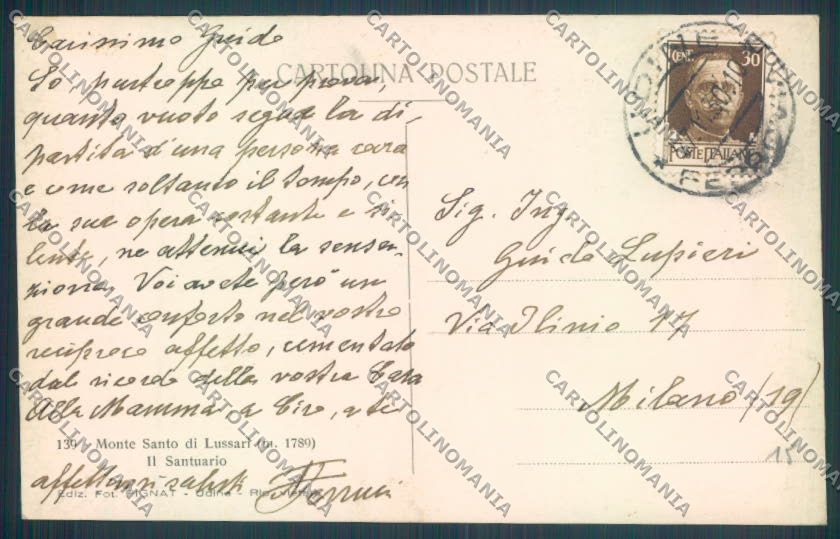 Carissimo Guido
So purtroppo per prova,
CARTOLINA POSTALE
quanto vuoto segue la di,
partita d'una persona cara
e come soltanto il tempo, con
la sua opera costante e si
lente, ne attenui la sensa,
zione. Voi avete però un
grande conforto nel vostro
reciproco affetto, cementato
dal ricordo della vostra Cara
Alla Mamma, a Ciro, a te
affettuosi saluti
139 - Monte Santo di Lussari (m. 1789)
Il Santuario
Ediz. Fot. PIGNAT - Udine
CENT. 30
POSTE ITALIANE
UDINE
Sig. Ing.
Guido Lupieri
Via Plinio 17
Milano (19)
15
CARTOLINOMANIA